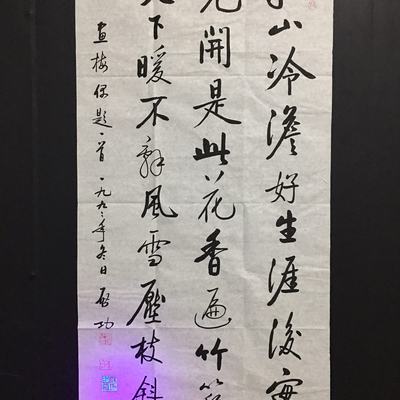 山冷澹好生涯後實
先開是此花香遍竹籬
下暖不辭風雪壓枝斜
畫梅偶題一首一九九二年冬日啟功